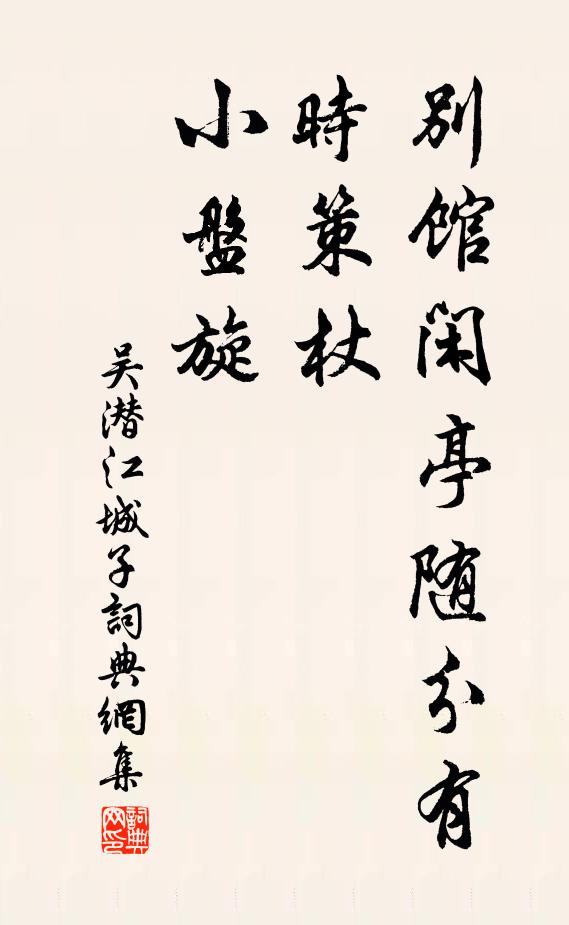 別館閑亭随分有
時策杖
小盤旋
吴潜江城子詞典網集
詞典网印